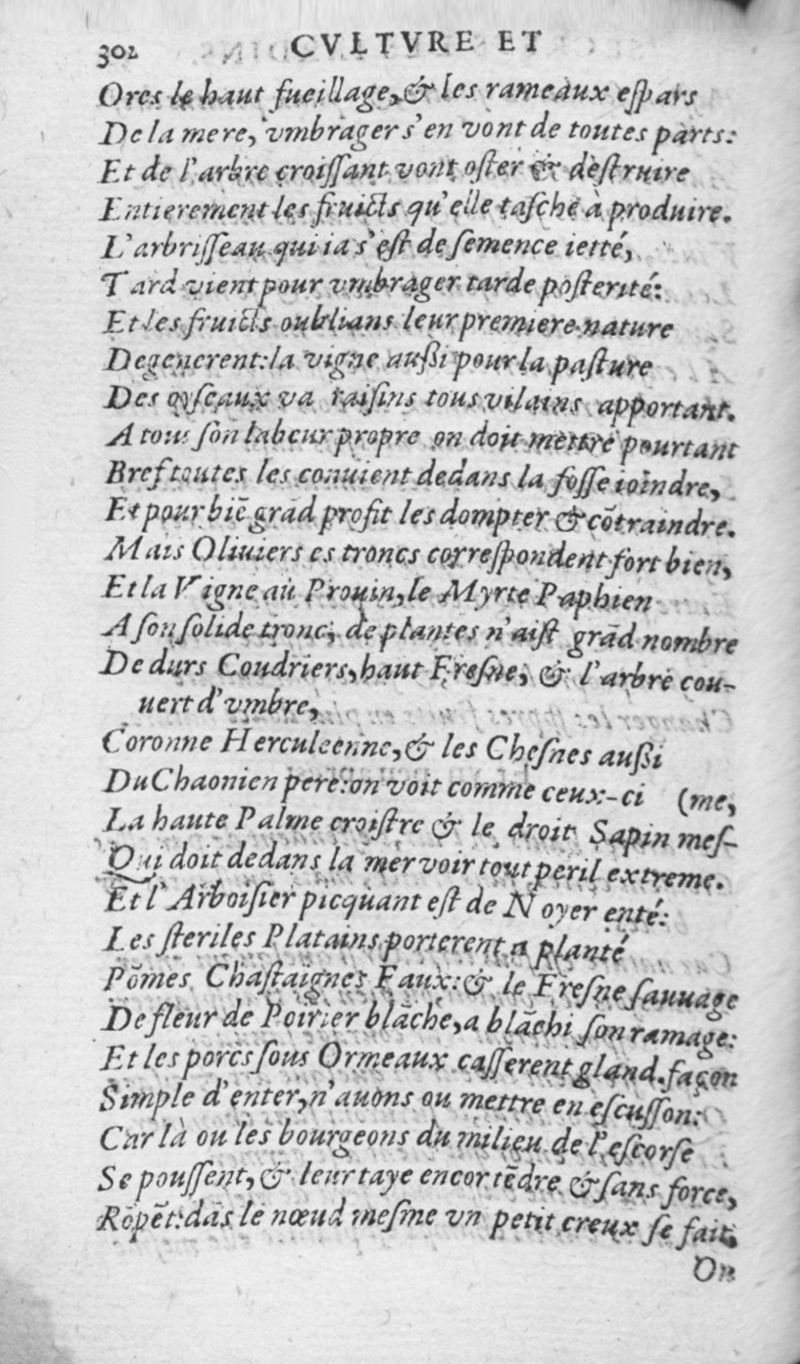 302 CVLTVRE ET
Ores le haut fueillage, & les rameaux eſpars
De la mere, vmbrager s'en vont de toutes parts:
Et de l'arbre croiſſant vont oſter & deſtruire
Entierement les fruicts qu'elle taſche à produire.
L'arbriſſeau qui ia s'eſt de ſemence ietté,
Tard vient pour vmbrager tarde poſterité:
Et les fruicts oublians leur premiere nature
Degenerent: la vigne außi pour la paſture
Des oyſeaux va raiſins tous vilains apportant.
A tous ſon labeur propre on doit mettre pourtant
Bref toutes les conuient dedans la foſſe ioindre,
Et pour biẽ grãd profit les dompter & cõtraindre.
Mais Oliuiers es troncs correſpondent fort bien,
Et la Vigne au Prouin, le Myrte Paphien
A ſon ſolide tronc, de plantes n'aiſt grãd nombre
De durs Coudriers, haut Freſne, & l'arbre cou-
uert d'vmbre,
Coronne Herculeenne, & les Cheſnes außi
Du Chaonien pere: on voit comme ceux-ci (me,
La haute Palme croiſtre & le droit Sapin meſ-
Qui doit dedans la mer voir tout peril extreme.
Et l'Arboiſier picquant eſt de Noyer enté:
Les ſteriles Platains porterent a planté
Põmes, Chaſtaignes Faux: & le Freſne ſauuage
De fleur de Poirier blãche, a blãchi ſon ramage:
Et les porcs ſous Ormeaux caſſerent gland. façon
Simple d'enter, n'auons ou mettre en eſcuſſon:
Car là ou les bourgeons du milieu de l'eſcorſe
Se pouſſent, & leur taye encor tẽdre & ſans force,
Rõpẽt: dãs le nœud meſme vn petit creux ſe fait,
On